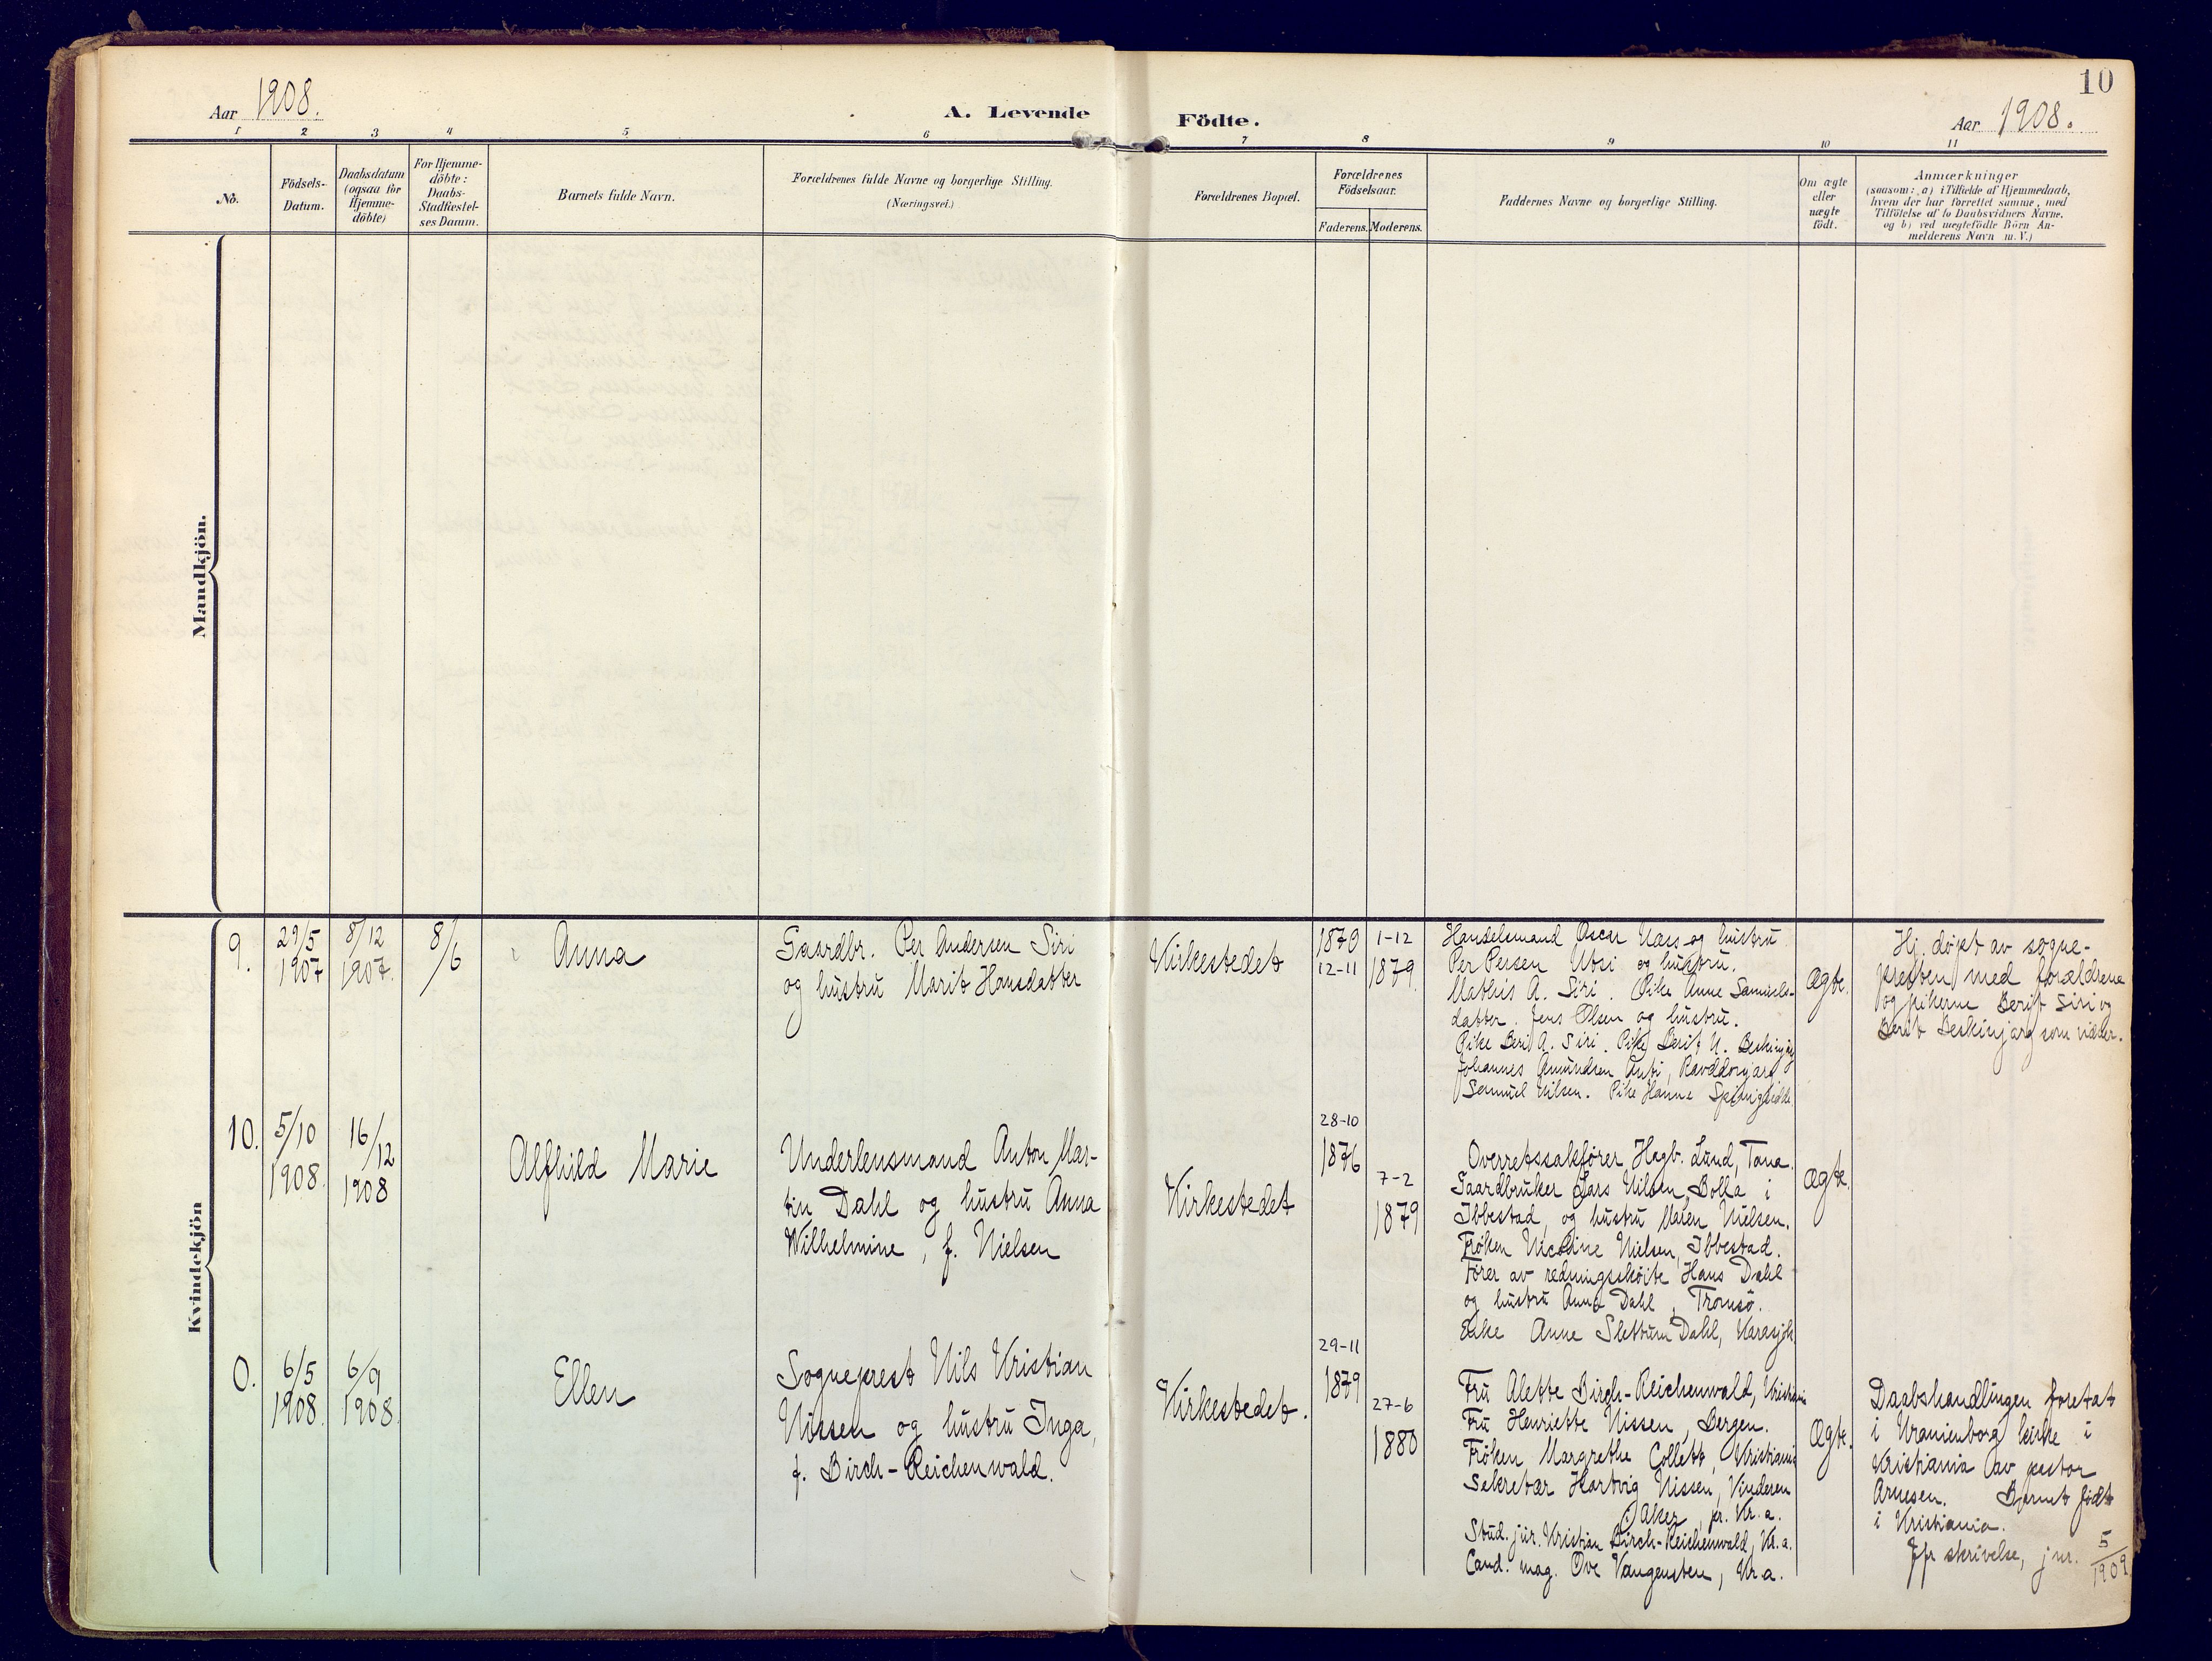 10
Aar 1908.
A. Levende Födte.
Aar 1908.
1 2 3 4 5 6 7 8 9 10 11
No.
Födsels-
Datum.
Daabsdatum
(ogsaa for
Hjemme-
döbte)
For Hjemme-
döbte:
Daabs-
Stadfæstel-
ses Datum.
Barnets fulde Navn.
Forældrenes fulde Navne og borgerlige Stilling.
(Næringsvei.)
Forældrenes Bopæl.
Forældrenes
Födselsaar.
Faderens. Moderens.
Faddernes Navne og borgerlige Stilling.
Om ægte
eller
uægte
födt.
Anmærkninger
(saasom: a) i Tilfælde af Hjemmedaab,
hvem der har forrettet samme, med
Tilföielse af to Daabsvidners Navne.
og b) ved uægtefödte Börn An-
melderens Navn m. V.)
Mandkjön.
Kvindekjön
9.
29/5
1907
8/12
1907.
8/6
Anna
Gaardbr. Per Andersen Siri
og hustru Marit Hansdatter
Kirkestedet
1870
12-11
1-12
1879.
Handelsmand Oscar Næss og hustru
Per Persen Utsi og hustru.
Mathis A. Siri. Pike Anne Samuels-
datter. Jens Olsen og hustru.
Pike Berit A. Siri. Pike Berit N.
Johannes Amundsen Anti,
Samuel Nilsen. Pike Hanne
Ægte.
Hj. döpt av sogne-
presten med forældrene
og pikerne Berit Siri og
Berit Beskinjarg som vidner.
10.
5/10
1908.
16/12
1908
Alfhild Marie
Underlensmand Anton Mar-
tin Dahl og hustru Anna
Wilhelmine, f. Nielsen
Kirkestedet
28-10
1876
7-2
1879
Overretssakförer Hagb. Lund, Tana.
Gaardbruker Lars Nilsen, Bolla i
Ibbestad, og hustru Maren Nielsen.
Fröken Nicoline Nielsen, Ibbestad.
Förer av redningssköite Hans Dahl
og hustru Anna Dahl, Tromsö.
Enke Anne Slettum Dahl, Karasjok
Ægte.
0.
6/5
1908.
6/9
1908.
Ellen
Sogneprest Nils Kristian
Nissen og hustru Inga,
f. Birch-Reichenwald.
Kirkestedet.
29-11
1879
27-6
1880
Fru Alette Birch-Reichenwald, Kristiania
Fru Henriette Nissen, Bergen.
Fröken Margrethe Collett, Kristiania
Sekretær Hartvig Nissen, Vinderen
i Aker, pr. Kr.a.
Stud. jur. Kristian Birch-Reichenwald, Kr.a.
Cand. mag. Ove Vangensten, Kr.a.
Ægte.
Daabshandlingen foretat
i Uranienborg kirke i
Kristiania av pastor
Arnesen. Barnet födt
i Kristiania.
Jfr skrivelse, jnr. 5/1909.